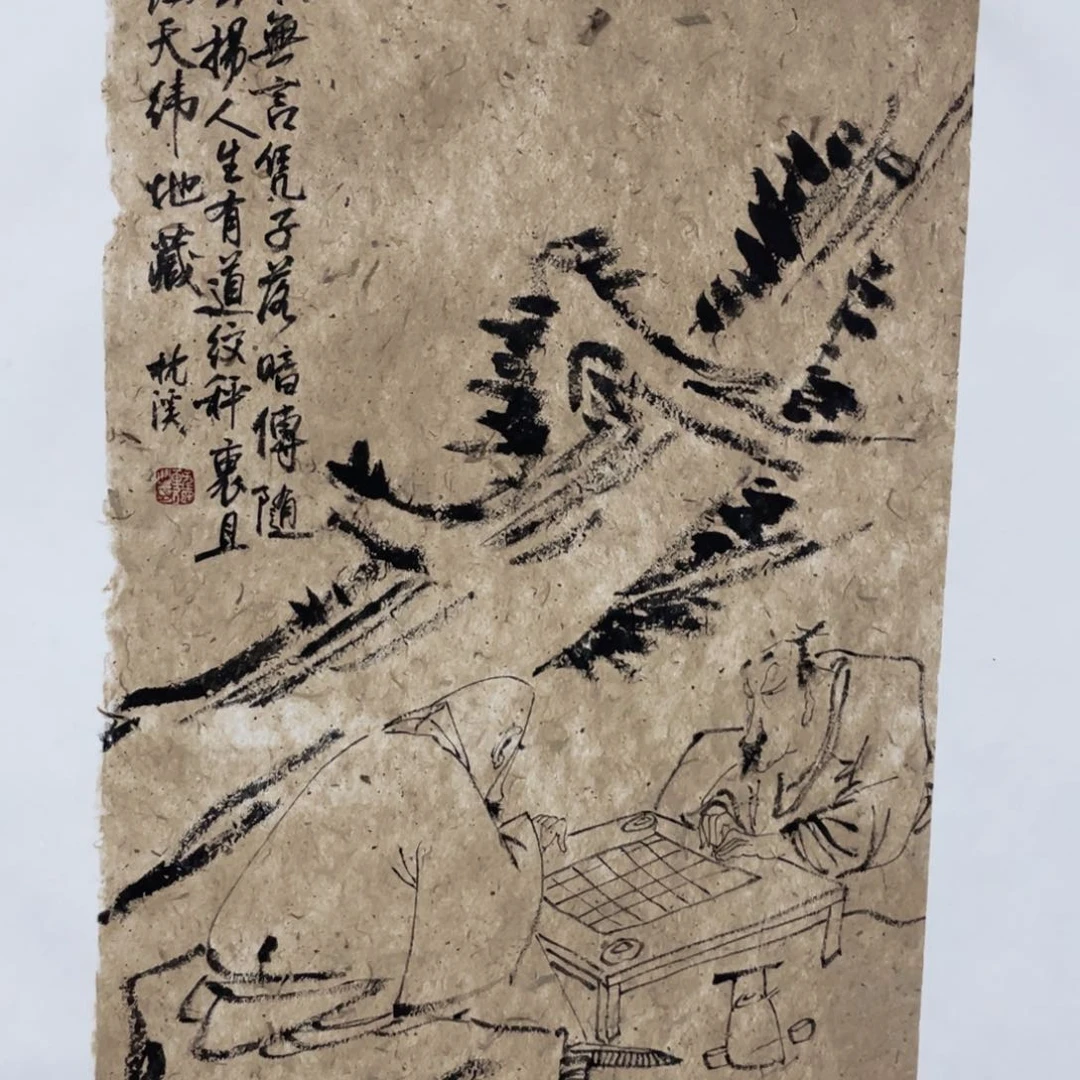 無言凭子落暗傳随
揚人生有道紋枰裏且
天緯地藏
枕溪